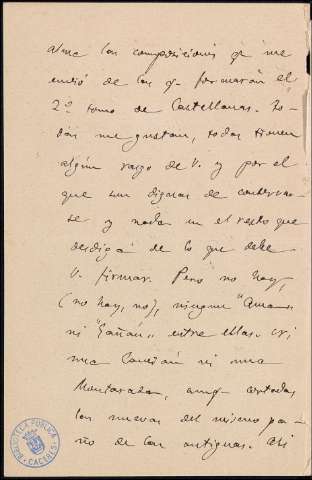 las composiciones q. me
envió de las q. formarán el
2º tomo de Castellanas. To-
das me gustan, todas tienen
algún rasgo de V. y por el
que son dignas de conservar-
se y nada en el resto que
desdiga de lo que debe
V. firmar. Pero no hay,
(no hay, no), ningun "Ama"
ni "Gañán" entre ellas. ni
una Canción ni una
Montaraza, aunq. cortadas
las nuevas del mismo pa-
ño de las antiguas. Así
BIBLIOTECA PÚBLICA
CÁCERES